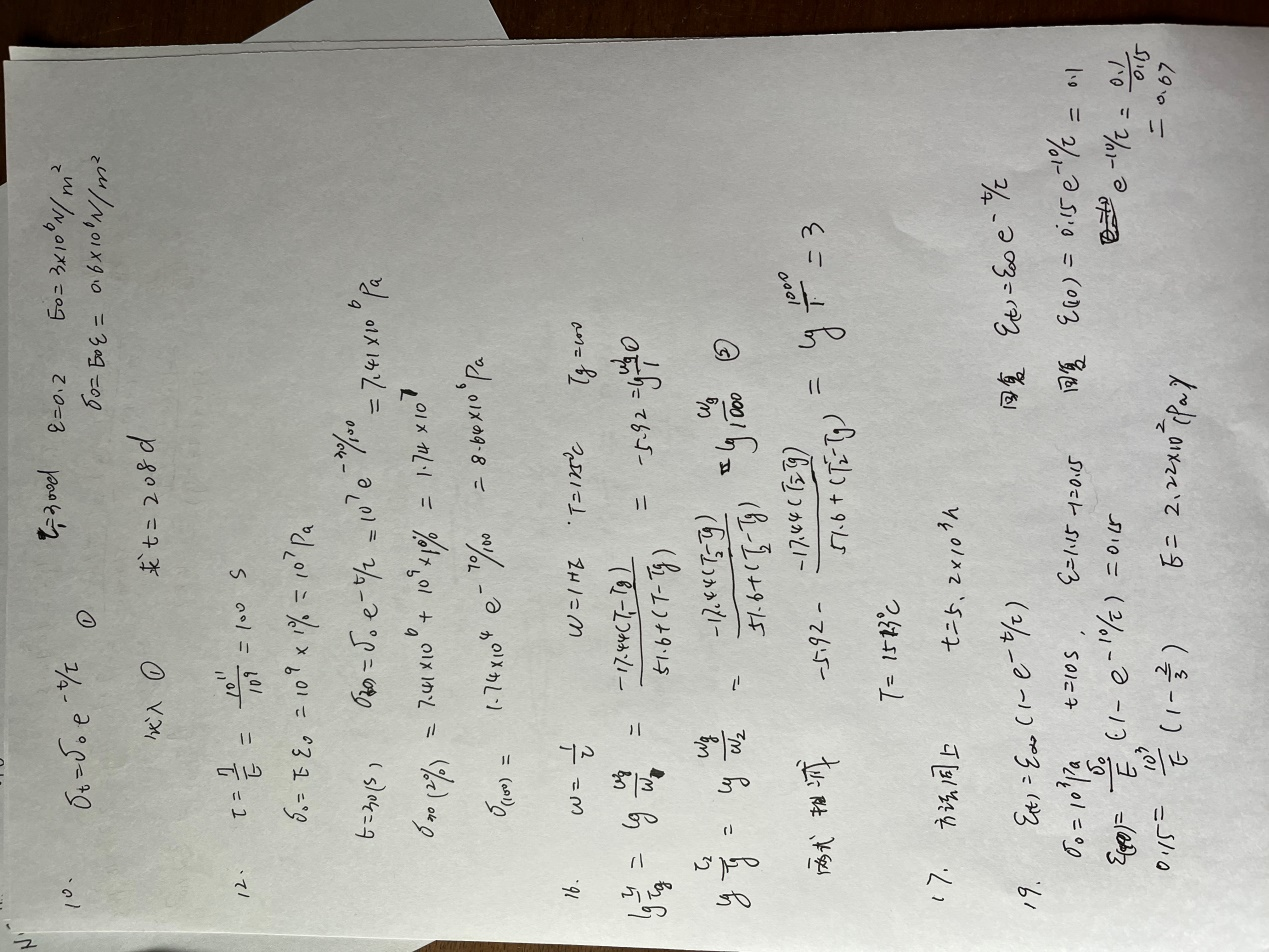 10. σt=σ0 e^-t/τ ① τ=300d ε=0.2 E0=3×10^6 N/m²
σ0=E0ε= 0.6×10^6 N/m²
代入① 求t=208d
12. τ=η/E = 10^11/10^9 =100 s
σ0=E ε0 = 10^9 ×1%=10^7 Pa
t=30(s), σ30=σ0 e^-t/τ =10^7 e^-30/100 =7.41×10^6 Pa
σ30(2%) =7.41×10^6 + 10^9 ×1% = 1.74×10^7
σ(100)= 1.74×10^4 e^-70/100 = 8.64×10^6 Pa
16. ω=1/τ ω=1HZ T=125℃ Tg=100
lg τ1/τg = lg ωg/ω1 = -17.44(T1-Tg)/51.6+(T-Tg) = -5.92 =lg ωg/1 ①
lg τ2/τg = lg ωg/ω2 = -17.44(T2-Tg)/51.6+(T2-Tg) = lg ωg/1000 ②
两式相减 -5.92- -17.44(T2-Tg)/51.6+(T2-Tg) = lg 1000/1 =3
17. 方法同上 t=5.2×10^3 h
19. ε(t)=ε∞(1-e^-t/τ) 回复 ε(t)=ε∞ e^-t/τ
σ0=10^3 Pa t=10s, ε=1.15-1=0.15 回复 ε(10)=0.15 e^-10/τ = 0.1
= σ0/E (1-e^-10/τ)=0.15 e^-10/τ = 0.1/0.15
0.15= 10^3/E (1-2/3) E=2.22×10^2 (Pa) = 0.67